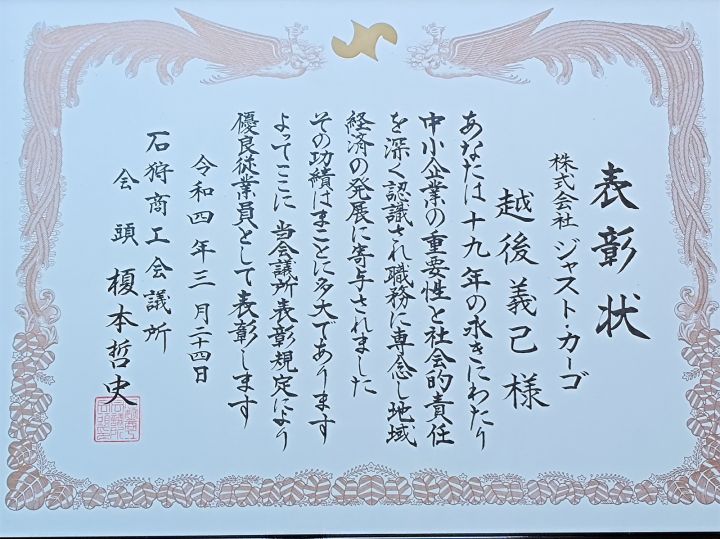 表彰状
株式会社 ジャスト・カーゴ
越後義己様
あなたは十九年の永きにわたり
中小企業の重要性と社会的責任
を深く認識され職務に専念し地域
経済の発展に寄与されました
その功績はまことに多大であります
よってここに 当会議所表彰規定により
優良従業員として表彰します
令和四年三月二十四日
石狩商工会議所
会頭 榎本哲史